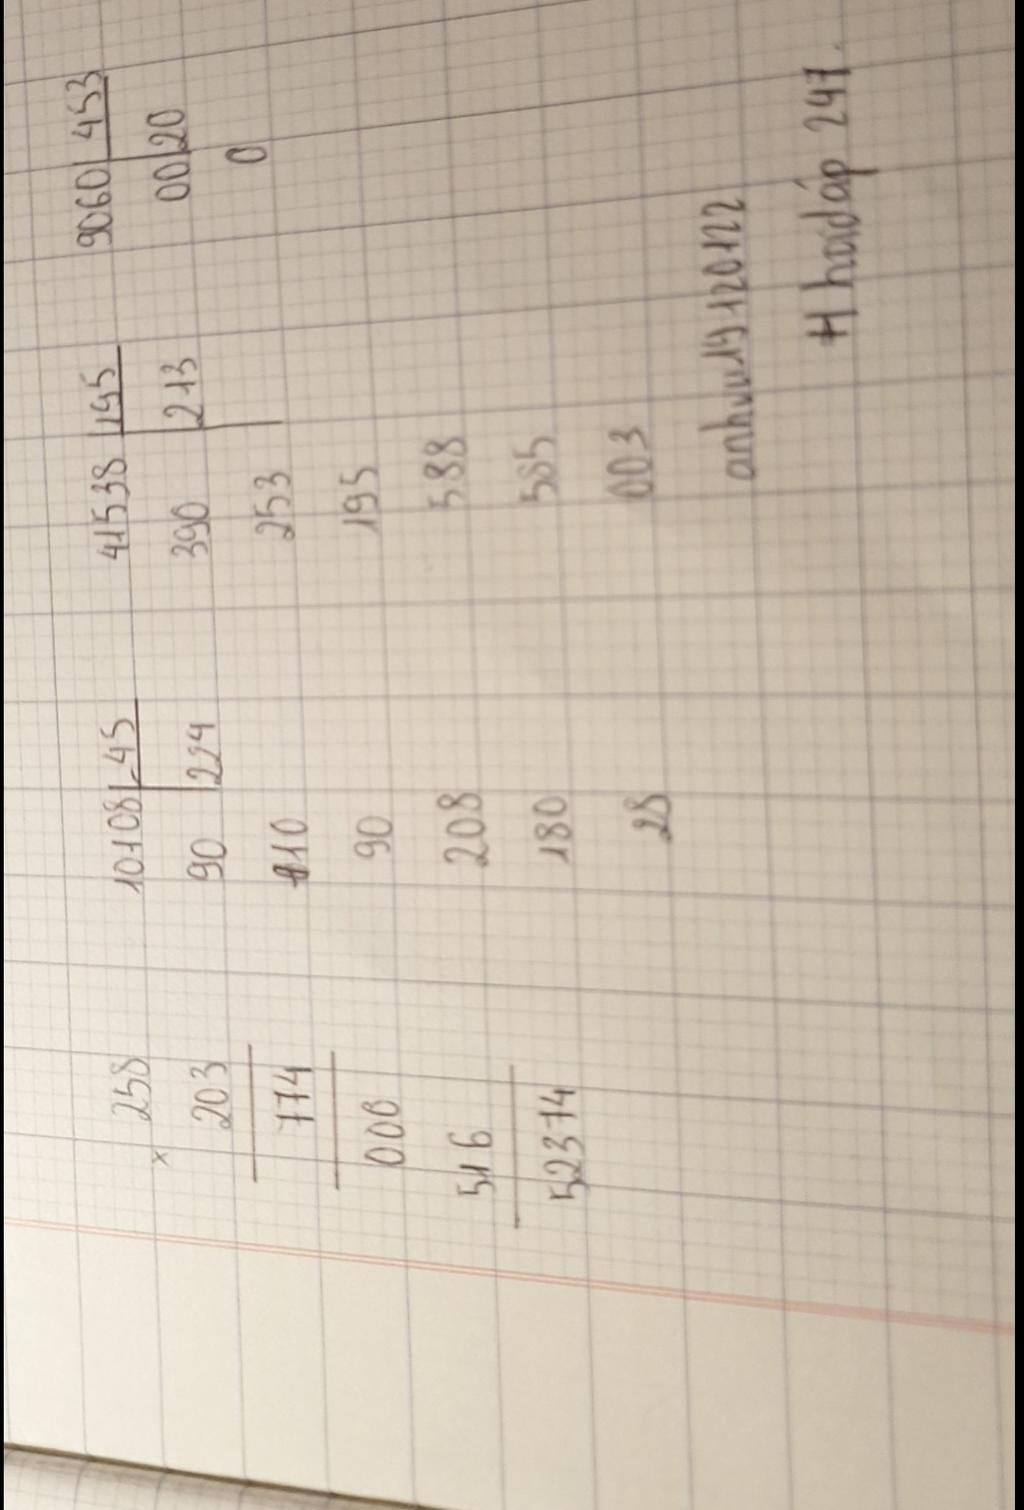 258
× 203
774
000
516
52374
10108 45
90 224
110
90
208
180
28
41538 195
390 213
253
195
588
585
003
9060 453
00 20
0
anhvu19120122
# hoidap 247.